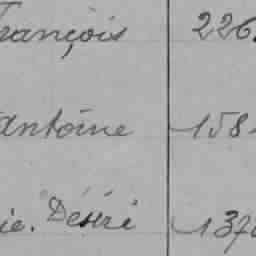 François 226
Antoine 158
ie. Désiré 137